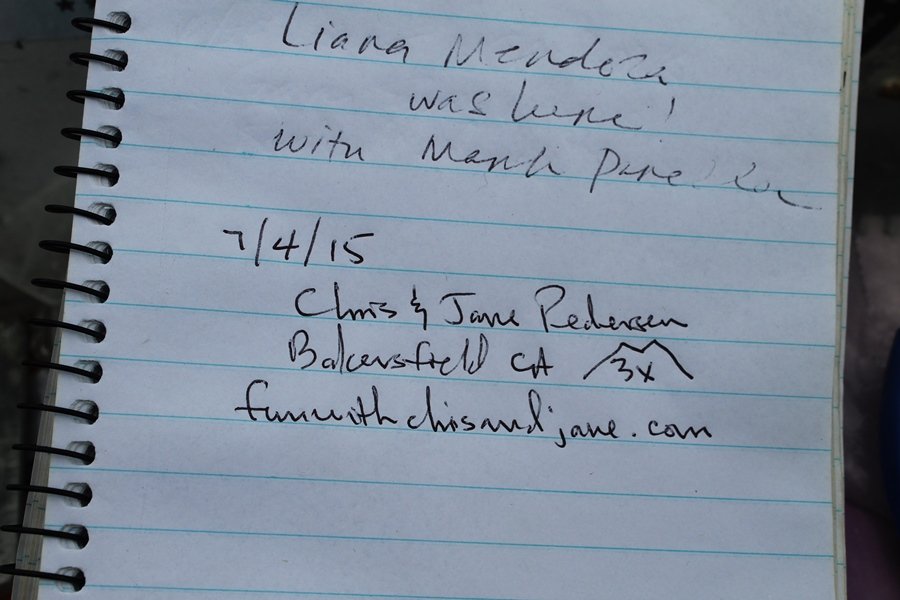 Liana Mendoza
was here!
with
7/4/15
Chris & Jane Pedersen
Bakersfield CA 3x
funwithchrisandjane.com